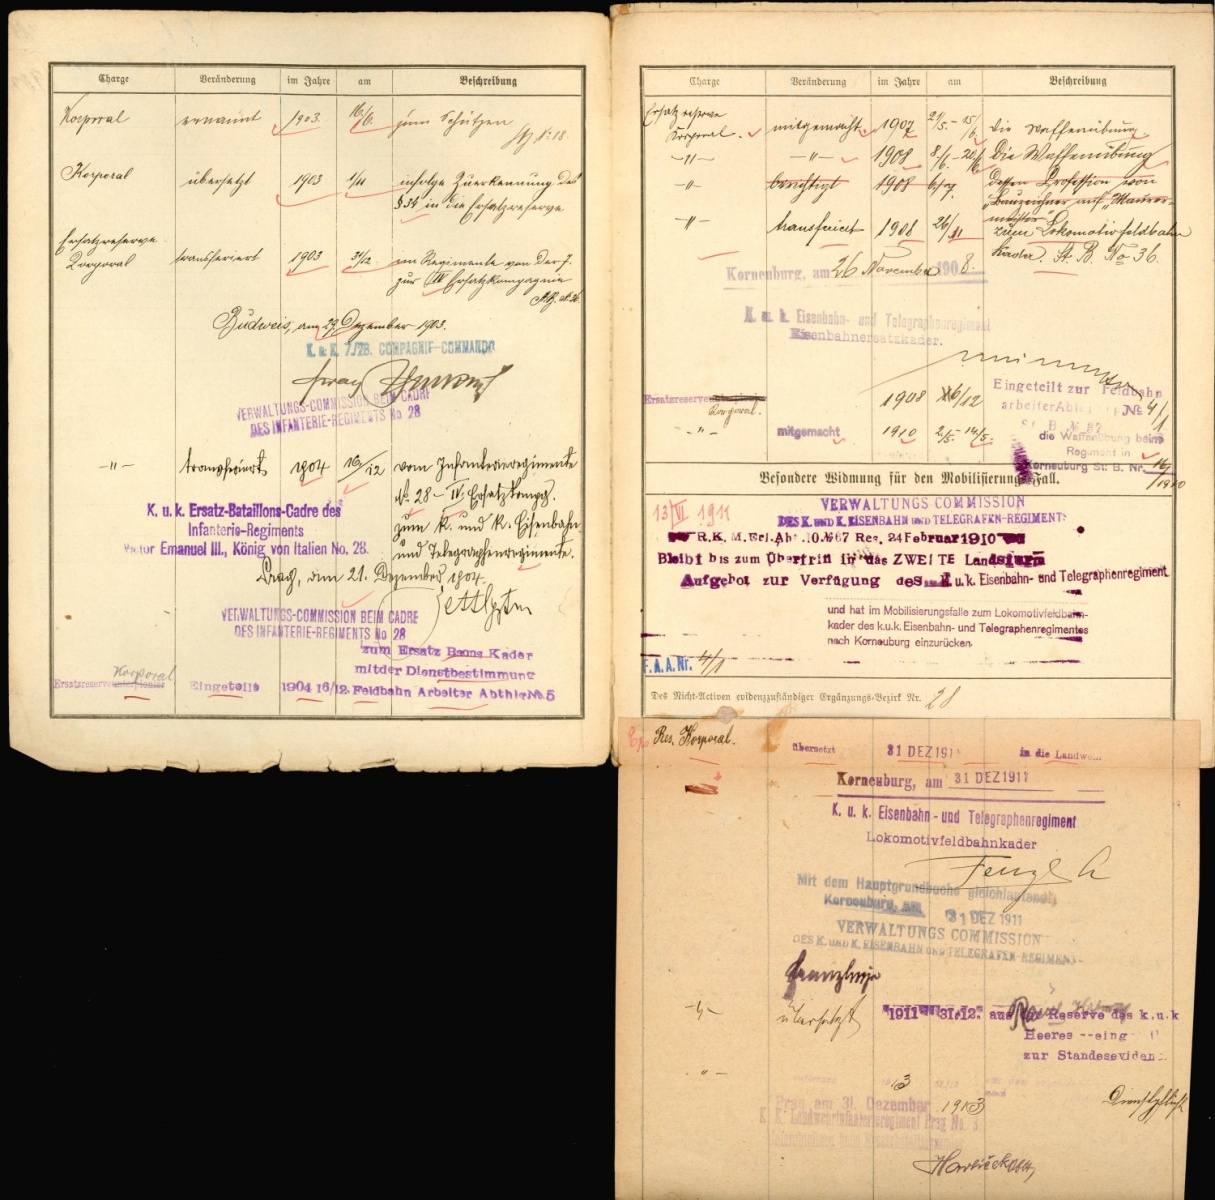 Charge Veränderung im Jahre am Beschreibung
Korporal ernannt 1903 16/6. zum Schützen
Korporal übersetzt 1903 1/11 infolge Zuerkennung des
§ 34 in die Ersatzreserve
Ersatzreserve
Korporal transferiert 1903 31/12. im Regimente von der 7.
zur IV Ersatzkompagnie
Budweis, am 29 Dezember 1903.
K. u. K. 7./28. COMPAGNIE-COMMANDO
VERWALTUNGS-COMMISSION BEIM CADRE
DES INFANTERIE-REGIMENTS No 28
-"- transferiert 1904 16/12 vom Infanterieregimente
No 28 - IV. Ersatzkompg.
zum k. und k. Eisenbahn
und Telegraphenregimente.
K. u. k. Ersatz-Bataillons-Cadre des
Infanterie-Regiments
Victor Emanuel III., König von Italien No. 28.
Prag, den 21. Dezember 1904.
VERWALTUNGS-COMMISSION BEIM CADRE
DES INFANTERIE-REGIMENTS No 28
zum Ersatz Baons Kader
mit der Dienstbestimmung
Korporal
Ersatzreserve Eingeteilt 1904 16/12. Feldbahn Arbeiter Abthlg No. 5
Charge Veränderung im Jahre am Beschreibung
Ersatzreserve
Korporal. mitgemacht 1907 21/5. - 15/6. die Waffenübung
-"- -"- 1908 die Waffenübung
-"- berichtigt 1908 dessen Profession von
"Bauzeichner auf "Maurer-
meister"
-"- transferiert 1908 26/11 zum Lokomotivfeldbahn
Kader. St. B. No 36.
Korneuburg, am 26 November 1908.
K. u. k. Eisenbahn- und Telegraphenregiment
Eisenbahnersatzkader.
Ersatzreserve
Korporal. 1908 16/12 Eingeteilt zur Feldbahn
arbeiter Abt No 4/1
-"- mitgemacht 1910 2/5. - 14/5. die Waffenübung beim
Regiment in
Korneuburg St: B. Nr. 16/1910
Besondere Widmung für den Mobilisierungs-Fall.
13/VI 1911
VERWALTUNGS COMMISSION
DES K. UND K. EISENBAHN UND TELEGRAFEN-REGIMENTS
R.K.M. Erl. Abt. 10. No 67 Res. 24 Februar 1910
Bleibt bis zum Übertritt in das ZWEITE Landsturm
Aufgebot zur Verfügung des k. u. k. Eisenbahn- und Telegraphenregiment
und hat im Mobilisierungsfalle zum Lokomotivfeldbahn-
kader des k.u.k. Eisenbahn- und Telegraphenregimentes
nach Korneuburg einzurücken.
F. A. A. Nr. 4/1
Des Nicht-Activen evidenzzuständiger Ergänzungs-Bezirk Nr. 28
Res. Korporal. übersetzt 31 DEZ 1911 in die Landwehr
Korneuburg, am 31 DEZ 1911
K. u. k. Eisenbahn- und Telegraphenregiment
Lokomotivfeldbahnkader
Mit dem Hauptgrundbuche gleichlautend,
Korneuburg, am 31 DEZ 1911
VERWALTUNGS COMMISSION
DES K. UND K. EISENBAHN UND TELEGRAFEN-REGIMENTS
-"- übersetzt 1911 31.12. aus der Reserve des k.u.k
Heeres
zur Standesevidenz
-"- Dienstpflicht
Prag am 31. Dezember 1913
K. K. Landwehrinfanterieregiment Prag No. 8